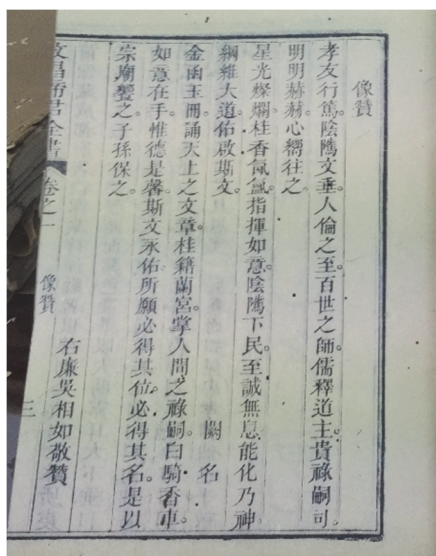 像贊
孝友行篤陰隲文垂人倫之至百世之師儒釋道主貴祿嗣司
明明赫赫心嚮往之
星光燦爛桂香氤氳指揮如意陰隲下民至誠無息能化乃神
綱維大道佑啟斯文
闕名
金函玉冊誦天上之文章桂籍蘭宮掌人間之祿嗣白騎香車
如意在手惟德是馨斯文永佑所願必得其位必得其名是以
宗廟饗之子孫保之
右廉吳相如敬贊
文昌帝君全書 卷之一 像贊 三